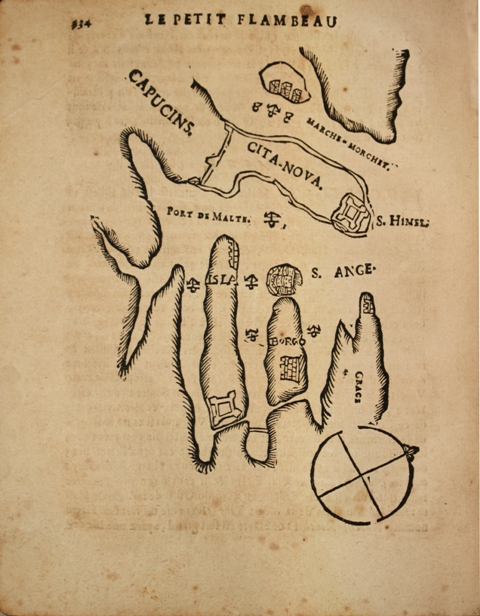 234
LE PETIT FLAMBEAU
CAPUCINS.
MARCHE-MORCHET.
CITA-NOVA.
PORT DE MALTE.
S. HIMEL
ISLA
S. ANGE.
BORGO
GRACE